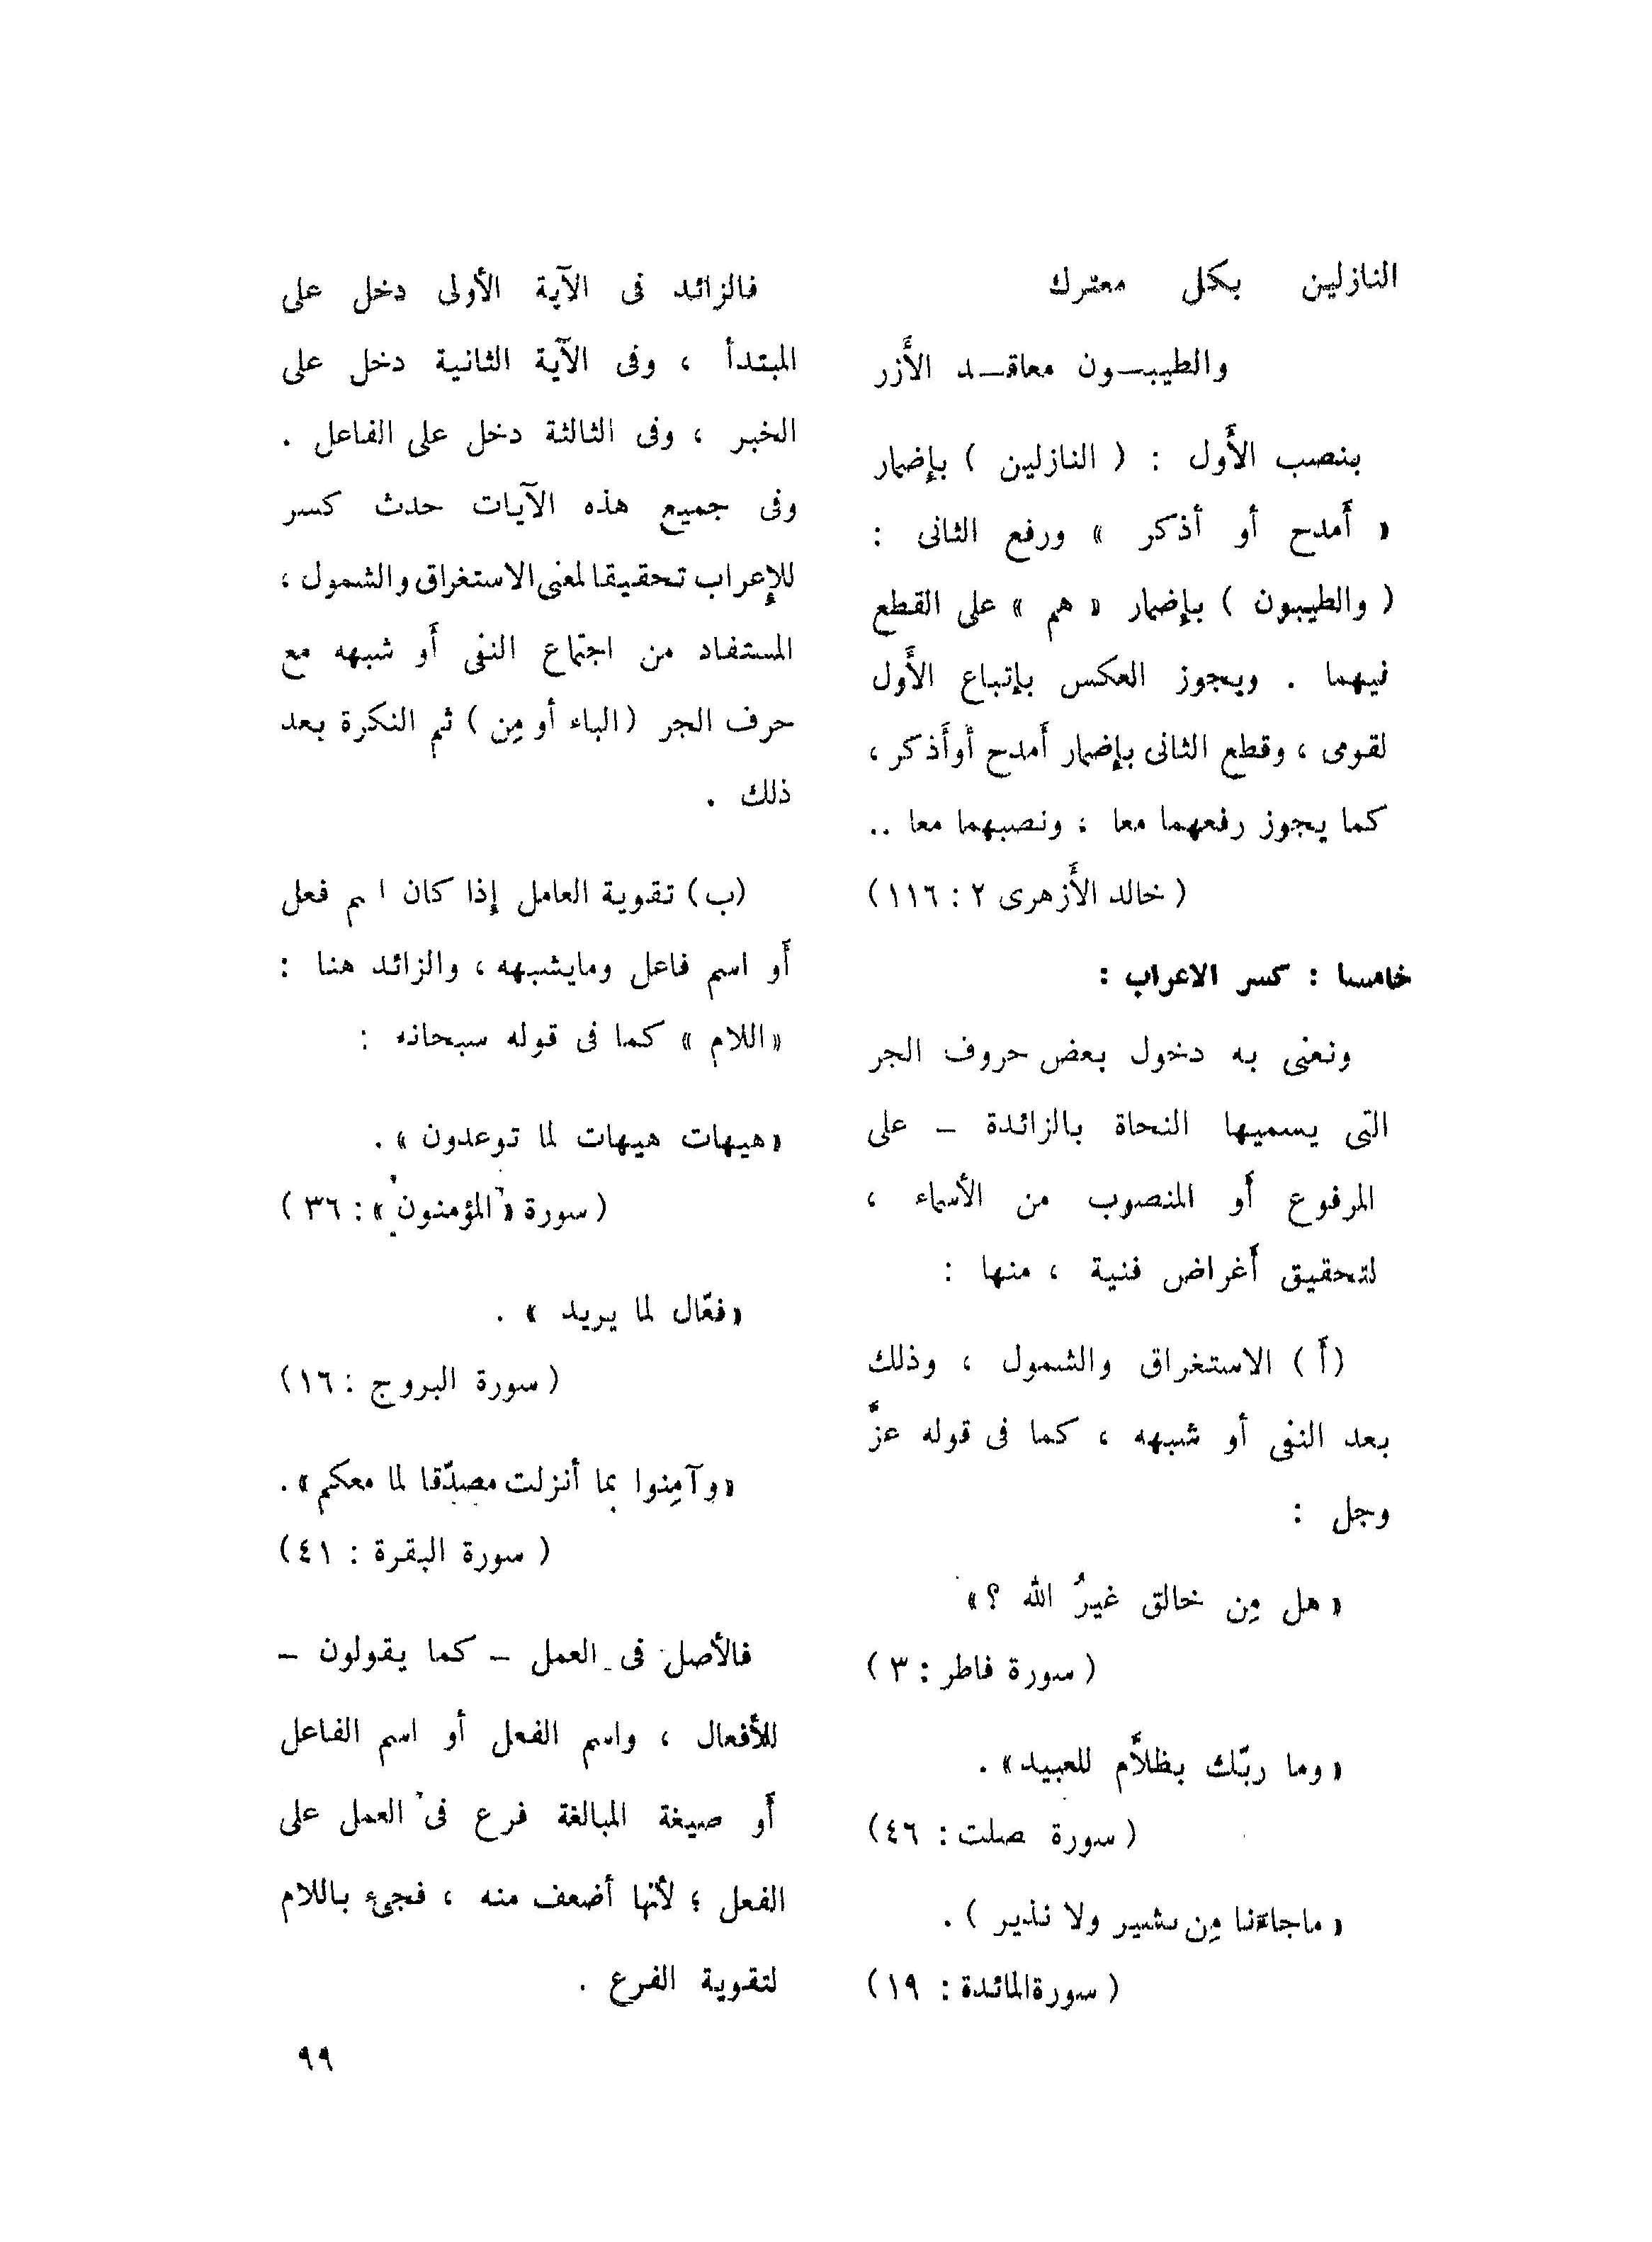 النازلين بكل معترك
والطيبـــون معاقـــد الأَزر
بنصب الأَول : ( النازلين ) بإِضمار
« أَمدح أو أذكر » ورفع الثانى :
( والطيبون ) بإِضمار « هم » على القطع
فيهما . ويجوز العكس بإتباع الأَول
لقومى ، وقطع الثانى بإِضمار أَمدح أوأَذكر ،
كما يجوز رفعهما معا ؛ ونصبهما معا ..
( خالد الأَزهرى ٢ : ١١٦)
خامسا : كسر الاعراب :
ونعنى به دخول بعض حروف الجر
التى يسميها النحاة بالزائدة – على
المرفوع أَو المنصوب من الأسماء ،
لتحقيق أَغراض فنية ، منها :
(أَ ) الاستغراق والشمول ، وذلك
بعد النفى أو شبهه ، كما فى قوله عزَّ
وجل :
« هل مِن خالق غيرُ الله ؟»
( سورة فاطر : ٣ )
« وما ربّك بظلاَّم للعبيد» .
( سورة صلت : ٤٦)
« ماجاءَنا مِن بشير ولا نذير ) .
( سورةالمائدة : ١٩)
فالزائد فى الآية الأولى دخل على
المبتدأ ، وفى الآية الثانية دخل على
الخبر ، وفى الثالثة دخل على الفاعل .
وفى جميع هذه الآيات حدث كسر
للإِعراب تحقيقا لمعنى الاستغراق والشمول ،
المستفاد من اجتماع النفى أَو شبهه مع
حرف الجر (الباء أو مِن ) ثم النكرة بعد
ذلك .
(ب) تقوية العامل إِذا كان ا م فعل
أَو اسم فاعل ومايشبهه ، والزائد هنا :
«اللام » كما فى قوله سبحانه :
«هيهات هيهات لما توعدون » .
( سورة « المؤمنون » : ٣٦ )
«فعّال لما يريد » .
( سورة البروج : ١٦)
«وآمِنوا بما أنزلت مصدّقا لما معكم» .
( سورة البقرة : ٤١)
فالأصل فى العمل – كما يقولون –
للأفعال ، واسم الفعل أو اسم الفاعل
أَو صيغة المبالغة فرع فى العمل على
الفعل ؛ لأنها أضعف منه ، فجىء باللام
لتقوية الفرع .
٩٩